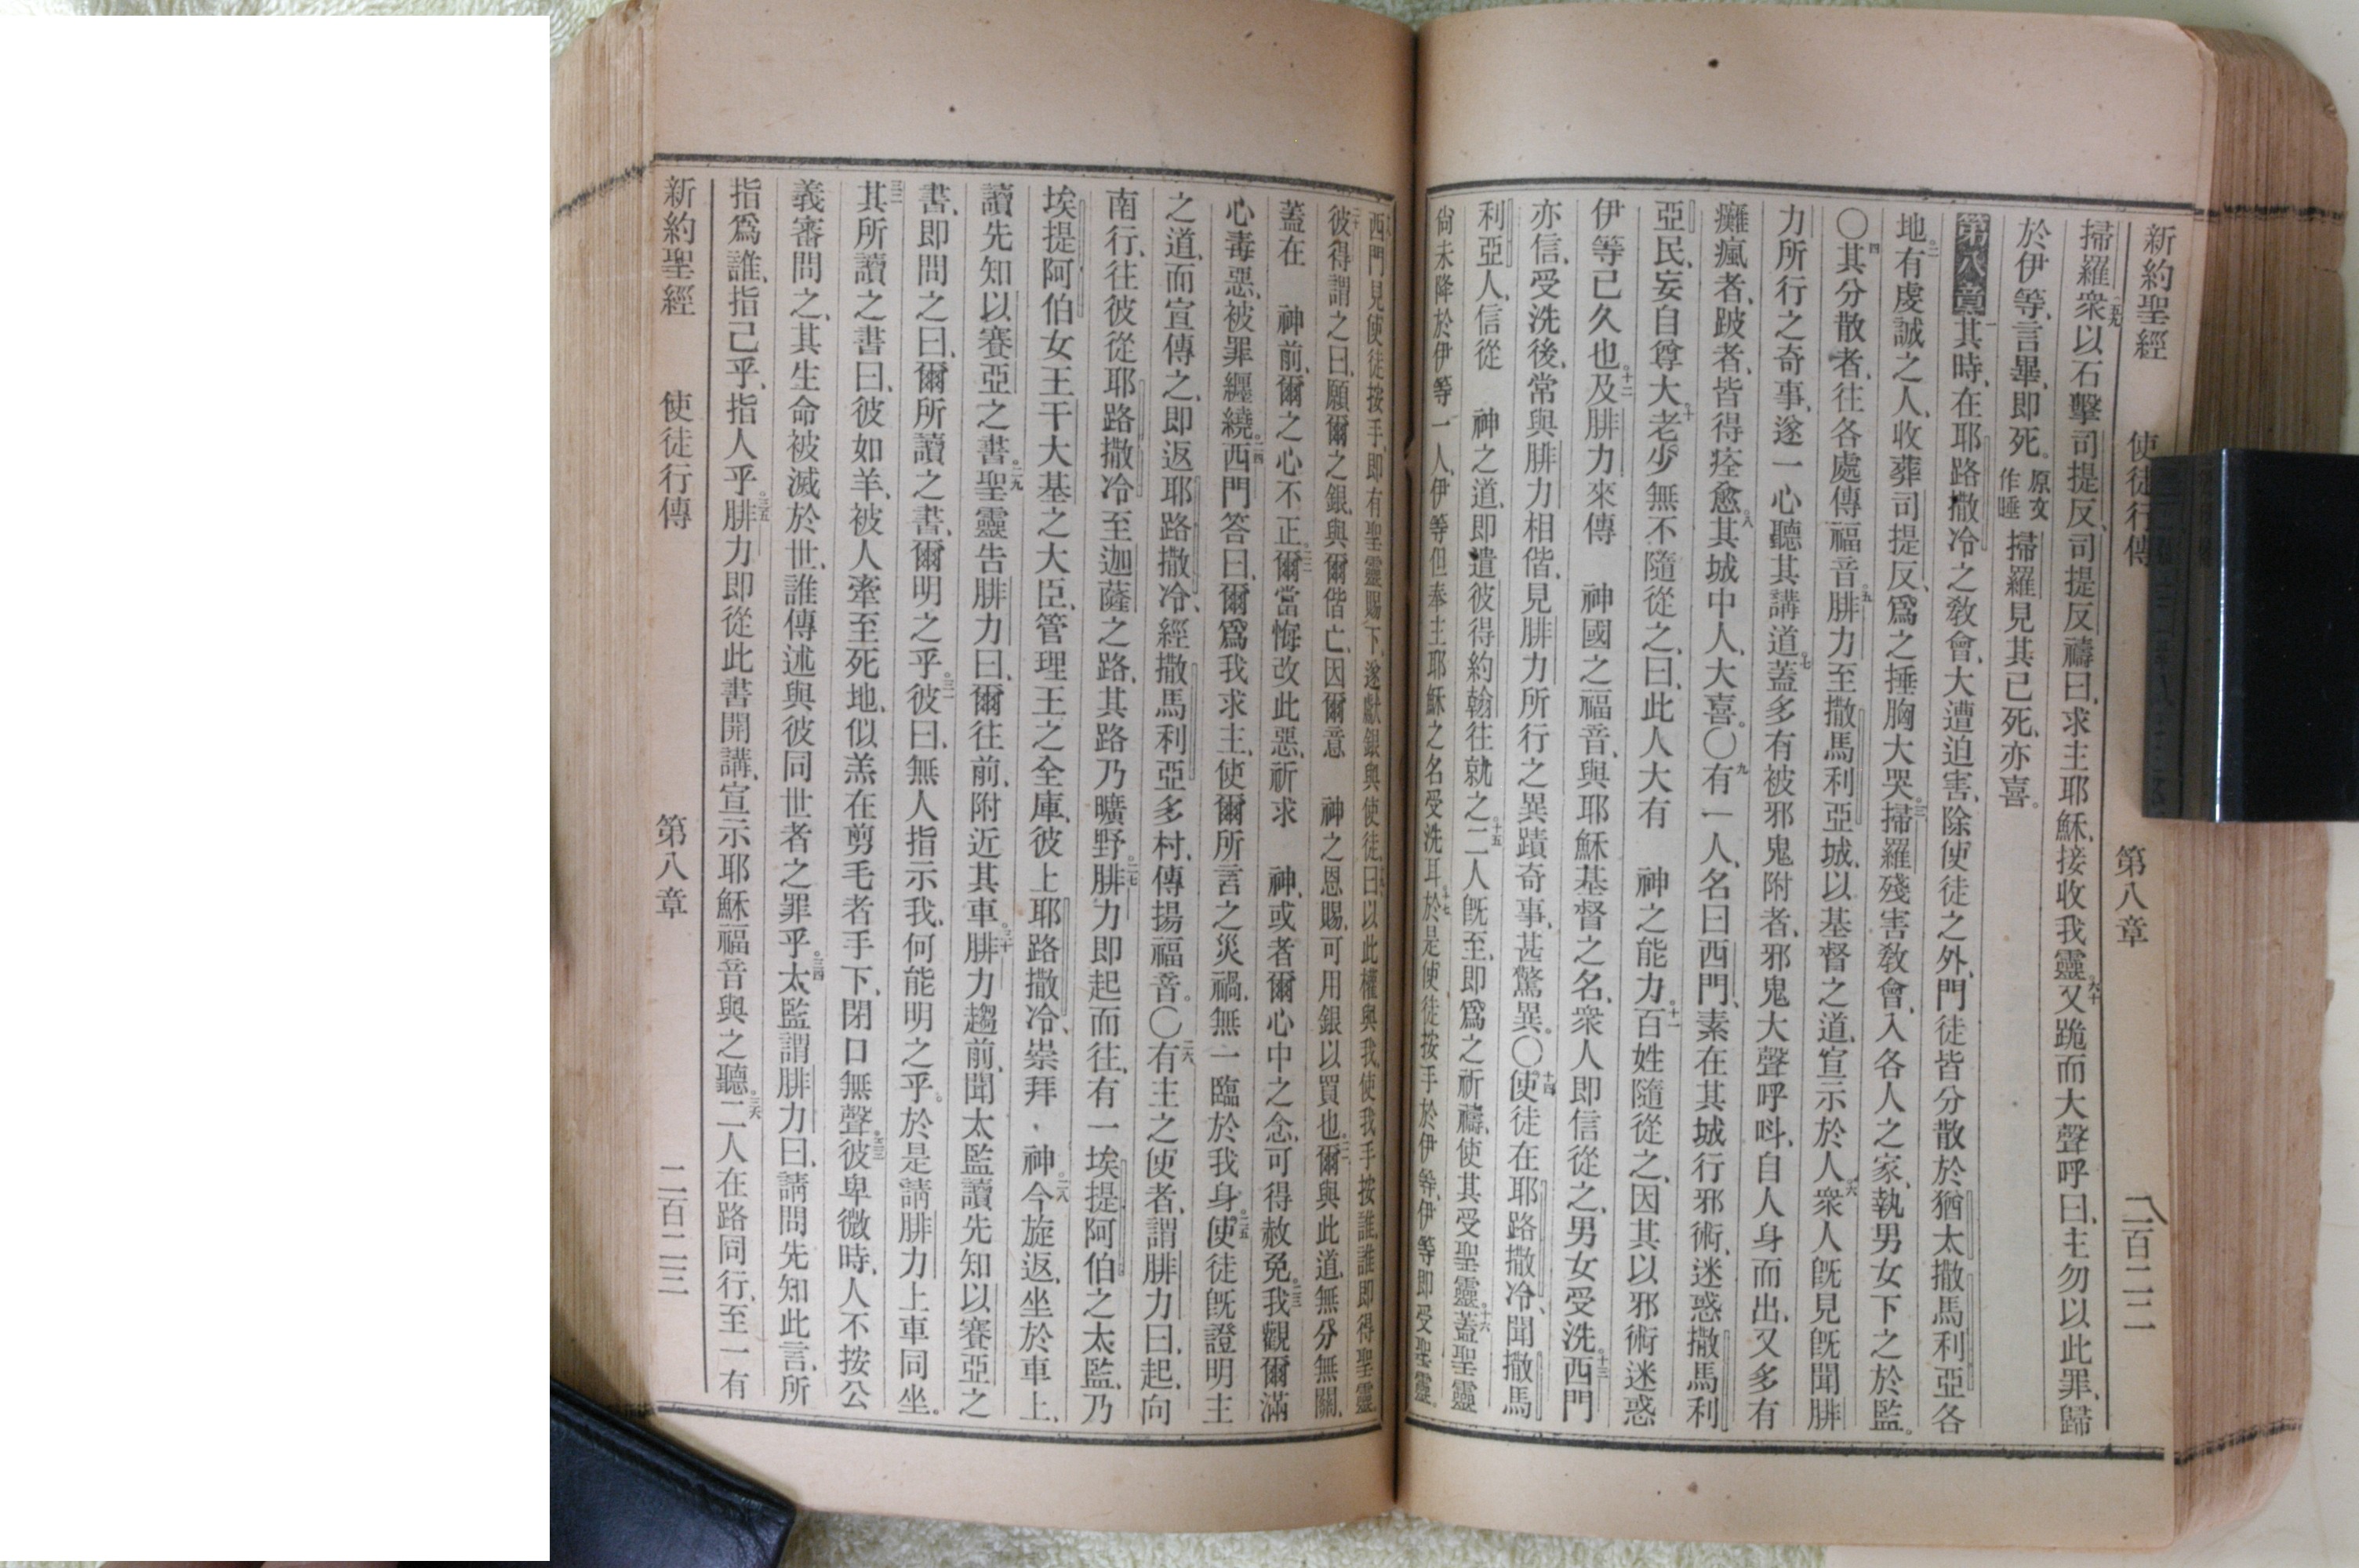 新約聖經 使徒行傳 第八章 二百二十二
掃羅、五九衆以石擊司提反、司提反禱曰、求主耶穌、接收我靈。六十又跪而大聲呼曰、主勿以此罪、歸
於伊等、言畢、即死。原文作睡掃羅見其已死、亦喜。
第八章一其時、在耶路撒冷之敎會、大遭迫害、除使徒之外、門徒皆分散於猶太撒馬利亞各
地。二有虔誠之人、收葬司提反、爲之捶胸大哭。三掃羅殘害敎會、入各人之家、執男女下之於監。
〇四其分散者、往各處傳福音。五腓力至撒馬利亞城、以基督之道、宣示於人。六衆人旣見旣聞腓
力所行之奇事、遂一心聽其講道。七蓋多有被邪鬼附者、邪鬼大聲呼呌、自人身而出、又多有
癱瘋者、跛者、皆得痊愈。八其城中人、大喜。〇九有一人、名曰西門、素在其城行邪術、迷惑撒馬利
亞民、妄自尊大。十老少無不隨從之、曰、此人大有 神之能力。十一百姓隨從之、因其以邪術迷惑
伊等已久也。十二及腓力來傳 神國之福音、與耶穌基督之名、衆人即信從之、男女受洗。十三西門
亦信、受洗後、常與腓力相偕、見腓力所行之異蹟奇事、甚驚異。〇十四使徒在耶路撒冷、聞撒馬
利亞人、信從 神之道、即遣彼得約翰往就之。十五二人旣至、即爲之祈禱、使其受聖靈。十六蓋聖靈
尙未降於伊等一人、伊等但奉主耶穌之名受洗耳。十七於是使徒按手於伊等、伊等即受聖靈。
十八西門見使徒按手、即有聖靈賜下、遂獻銀與使徒、十九曰、以此權與我、使我手按誰、誰即得聖靈。
二十彼得謂之曰、願爾之銀、與爾偕亡、因爾意 神之恩賜、可用銀以買也。二一爾與此道、無分無關、
蓋在 神前、爾之心不正。二二爾當悔改此惡、祈求 神、或者爾心中之念、可得赦免。二三我觀爾滿
心毒惡、被罪纒繞。二四西門答曰、爾爲我求主、使爾所言之災禍、無一臨於我身。二五使徒旣證明主
之道、而宣傳之、即返耶路撒冷、經撒馬利亞多村、傳揚福音。〇二六有主之使者、謂腓力曰、起、向
南行、往彼從耶路撒冷至迦薩之路、其路乃曠野。二七腓力即起而往、有一埃提阿伯之太監、乃
埃提阿伯女王干大基之大臣、管理王之全庫、彼上耶路撒冷、崇拜 神。二八今旋返、坐於車上、
讀先知以賽亞之書。二九聖靈告腓力曰、爾往前、附近其車。三十腓力趨前、聞太監讀先知以賽亞之
書、即問之曰、爾所讀之書、爾明之乎。三一彼曰、無人指示我、何能明之乎。於是請腓力上車同坐。
三二其所讀之書曰、彼如羊、被人牽至死地、似羔在剪毛者手下、閉口無聲。三三彼卑微時、人不按公
義審問之、其生命被滅於世、誰傳述與彼同世者之罪乎。三四太監謂腓力曰、請問先知此言、所
指爲誰、指己乎、指人乎。三五腓力即從此書開講、宣示耶穌福音與之聽。三六二人在路同行、至一有
新約聖經 使徒行傳 第八章 二百二三